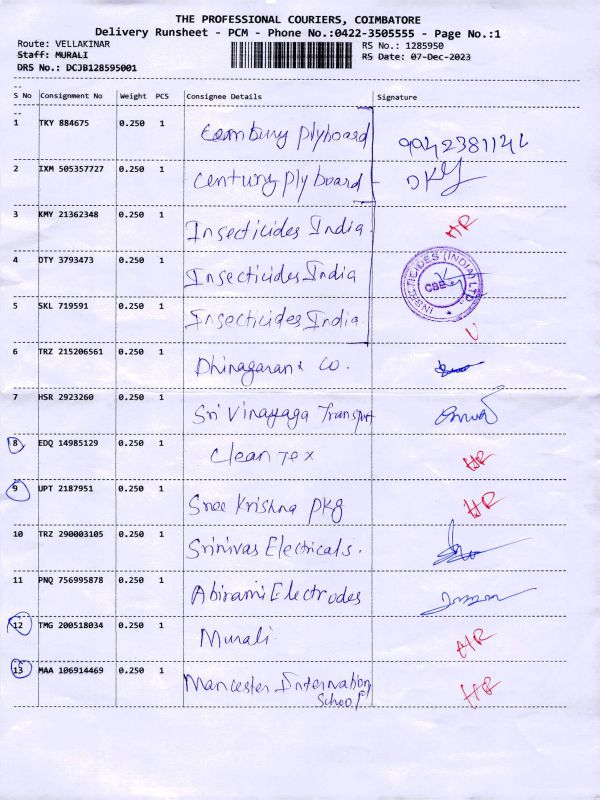 THE PROFESSIONAL COURIERS, COIMBATORE
Delivery Runsheet - PCM - Phone No.:0422-3505555 - Page No.:1
Route: VELLAKINAR RS No.: 1285950
Staff: MURALI RS Date: 07-Dec-2023
DRS No.: DCJB128595001
S No Consignment No Weight PCS Consignee Details Signature
1 TKY 884675 0.250 1 Century Plyboard 9942381142
2 IXM 505357727 0.250 1 Century Plyboard
3 KMY 21362348 0.250 1 Insecticides India HR
4 DTY 3793473 0.250 1 Insecticides India INSECTICIDES (INDIA) LTD. CBE
5 SKL 719591 0.250 1 Insecticides India
6 TRZ 215206561 0.250 1 Dhinagaran & co.
7 HSR 2923260 0.250 1 Sri Vinayaga Transport
8 EDQ 14985129 0.250 1 Clean Tex HR
9 UPT 2187951 0.250 1 Sree Krishna Pkg HR
10 TRZ 290003105 0.250 1 Srinivas Electricals.
11 PNQ 756995878 0.250 1 Abirami Electrodes
12 TMG 200518034 0.250 1 Murali HR
13 MAA 106914469 0.250 1 Mancester Internation HR
School